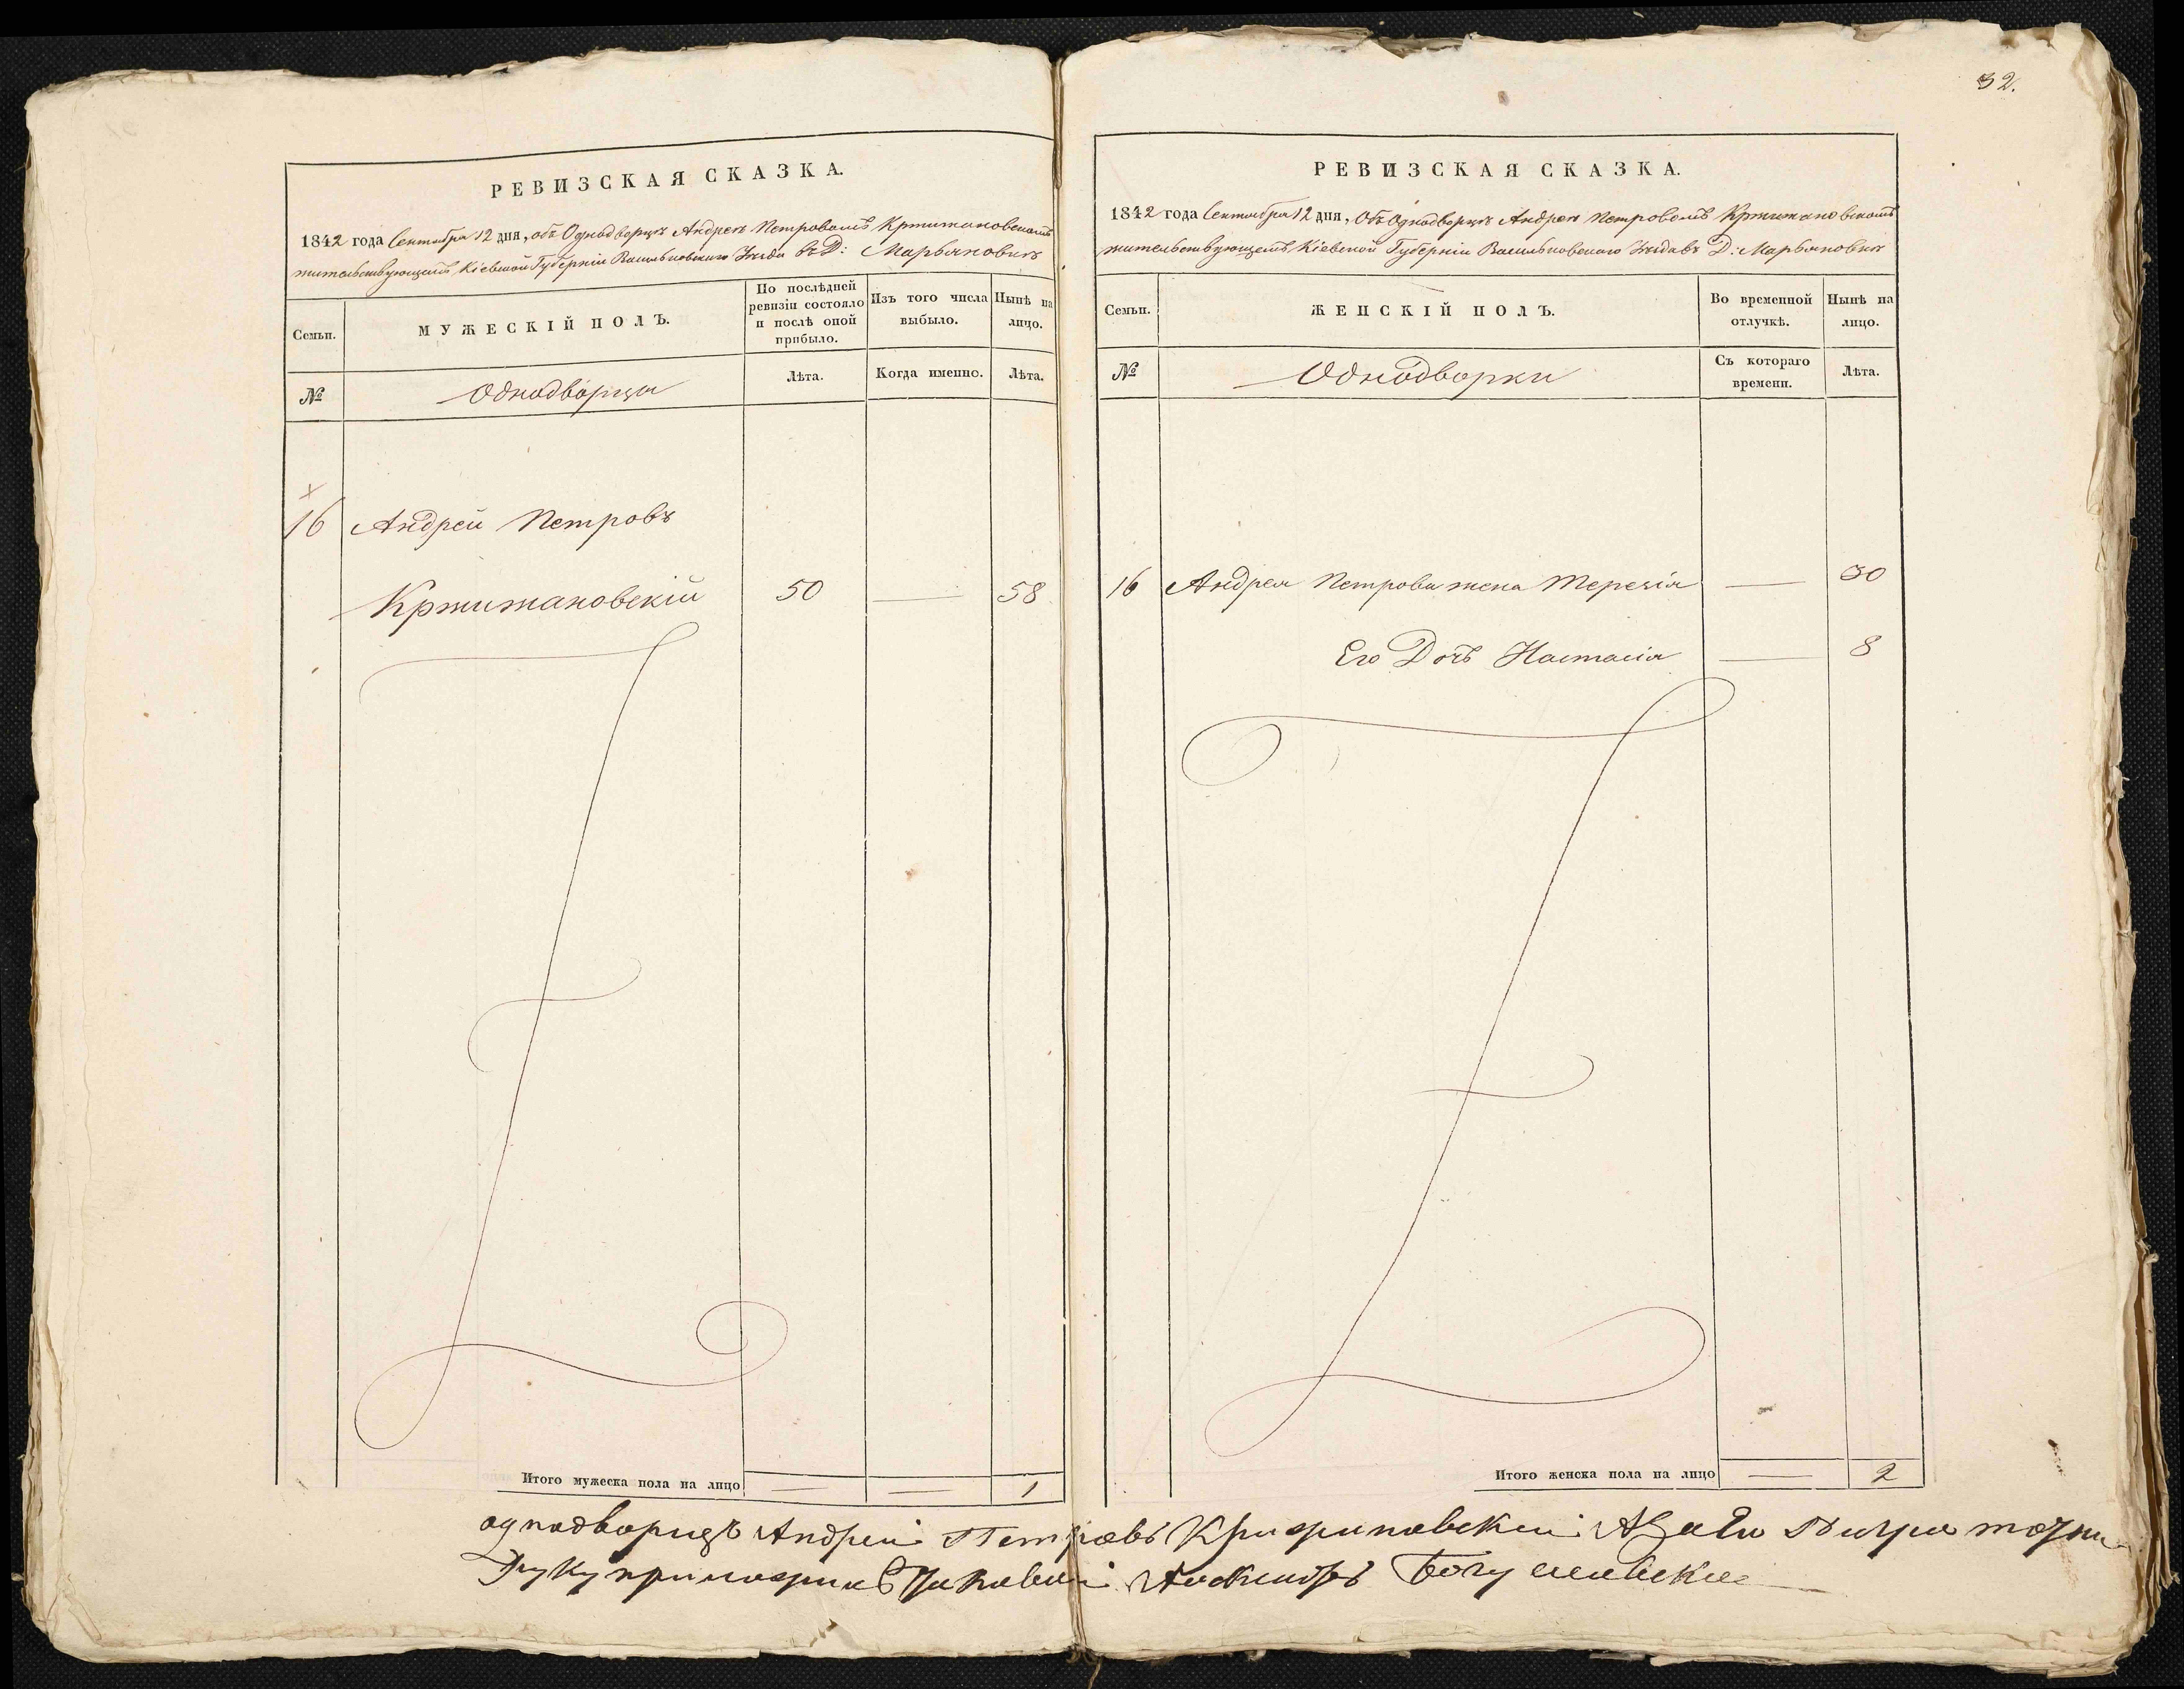 32.
РЕВИЗСКАЯ СКАЗКА.
1842 года Сентября 12 дня, объ Однодворцѣ Андреѣ Петровомъ Кржижановскомъ
жительствующемъ Кіевской Губерніи Васильковскаго Уѣзда въ Д: Марьяновкѣ
Семьи.
МУЖЕСКІЙ ПОЛЪ.
По послѣдней
ревизіи состояло
и послѣ оной
прибыло.
Изъ того числа
выбыло.
Нынѣ на
лицо.
№
Однодворцы
Лѣта.
Когда именно.
Лѣта.
16 Андрей Петровъ
Кржижановскій 50 — 58
Итого мужеска пола на лицо — — 1
РЕВИЗСКАЯ СКАЗКА.
1842 года Сентября 12 дня, Объ Однодворцѣ Андреѣ Петровомъ Кржижановскомъ
жительствующемъ Кіевской Губерніи Васильковскаго Уѣзда въ Д: Марьяновкѣ
Семьи.
ЖЕНСКІЙ ПОЛЪ.
Во временной
отлучкѣ.
Нынѣ на
лицо.
№
Однодворки
Съ котораго
времени.
Лѣта.
16 Андрея Петрова жена Терезія — 30
Его Дочь Настасія — 8
Итого женска пола на лицо — 2
однодворецъ Андрей Петровъ Кржижановскій А За Его
Руку приложилъ